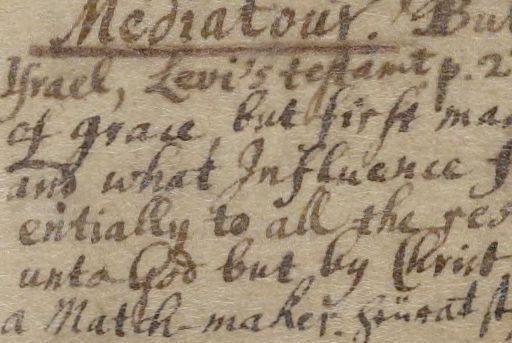 Mediatour. But
Israel, Levi's tenant p. 2
of grace, but first ma
and what Influence f
entially to all the res
unto God but by Christ
a Match-maker.